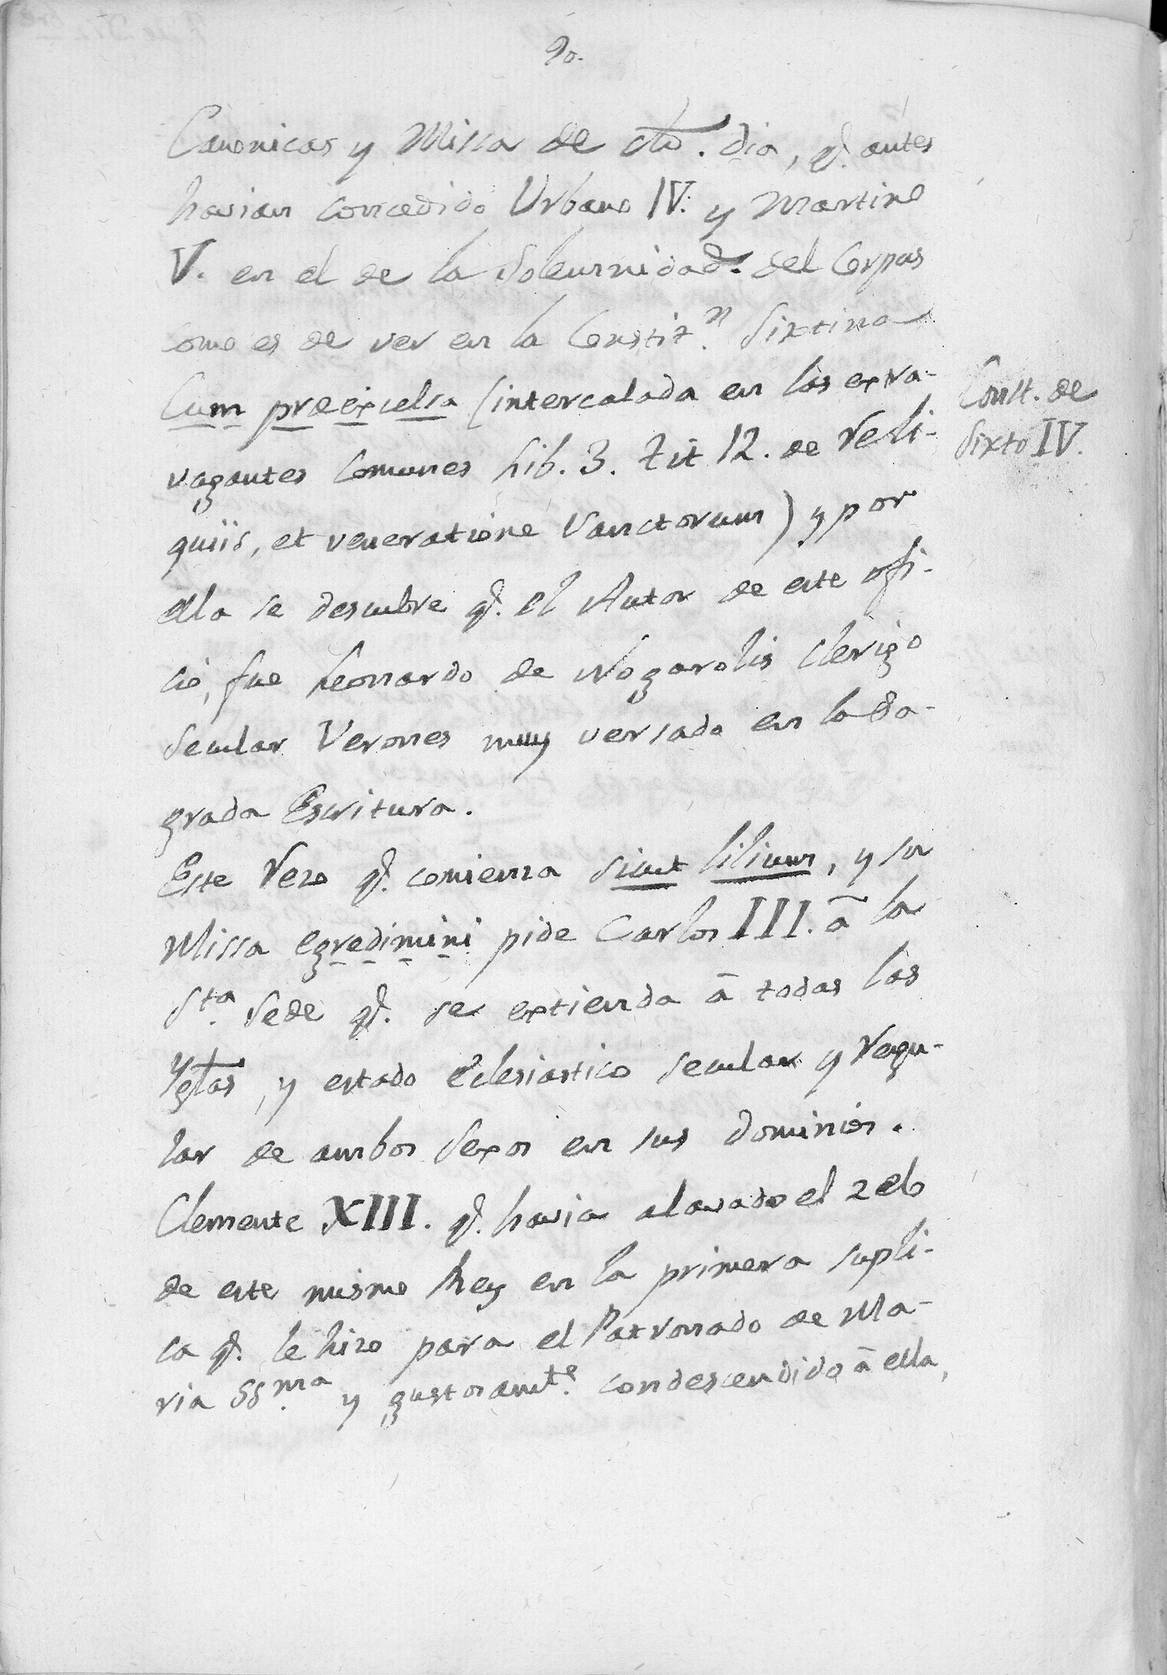 90.
Canonicas y Missa de dho. dia, q. antes
havian concedido Urbano IV. y Martino
V. en el de la Solemnidad. del Corpus
como es de ver en la Constit.n Sixtina
Cum præexcelsa (intercalada en las extra-
Const. de
Sixto IV.
vagantes comunes Lib. 3. tit 12. de reli-
quiis, et veneratione Sanctorum) y por
ella se descubre q. el Autor de este ofi-
cio, fue Leonardo de Nogarolis Clerigo
Secular Verones muy versado en la Sa-
grada Escritura.
Este Rezo q. comienza Sicut lilium, y su
Missa egredimini pide Carlos III. â la
Sta. Sede q. se extienda â todas las
Yglas, y estado Eclesiastico secular y Regu-
lar de ambos Sexos en sus dominios.
Clemente XIII. q. havia alavado el zelo
de este mismo Rey en la primera supli-
ca q. le hizo para el Patronado de Ma-
ria SS.ma y gustosamte. condescendido â ella,